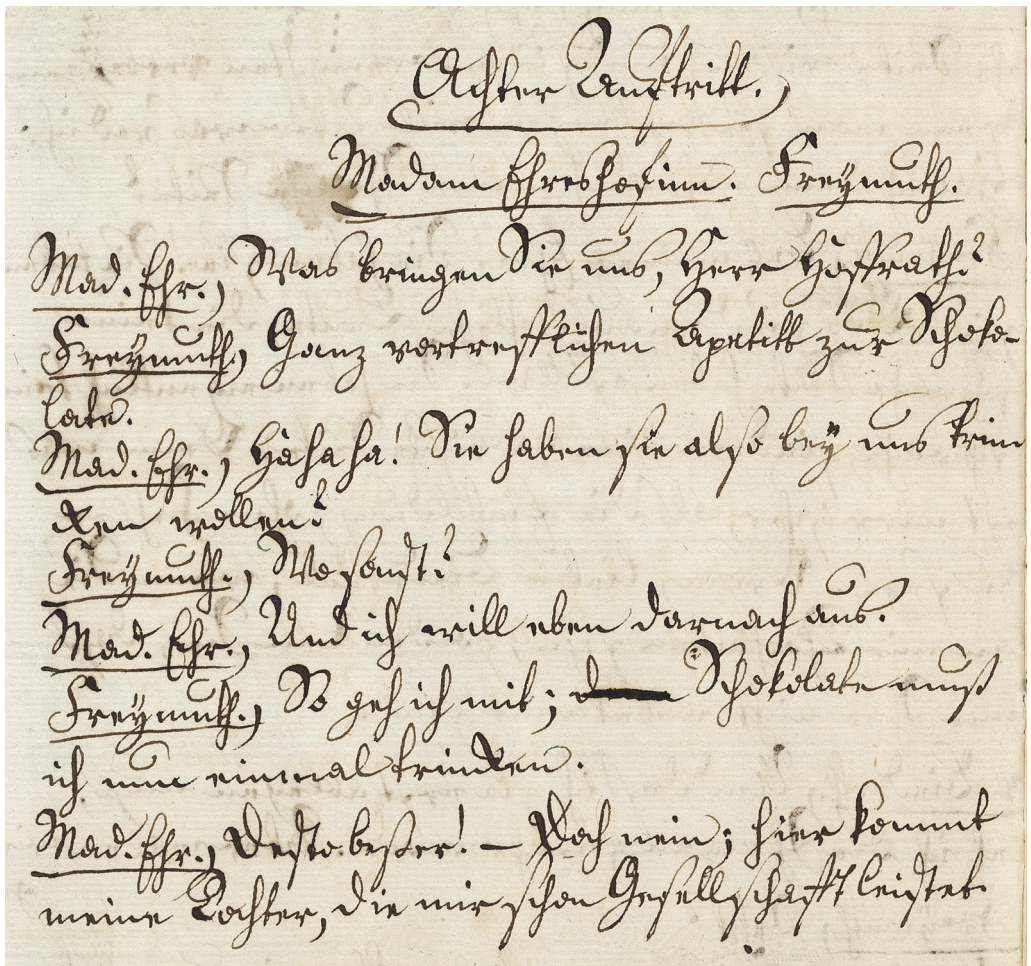 Achter Auftritt.
Madam Ehreshofinn. Freymuth.
Mad. Ehr.) Was bringen Sie uns, Herr Hoffrath?
Freymuth.) Ganz vortrefflichen Apetitt zur Schoko-
late.
Mad. Ehr.) Hahaha! Sie haben sie also bey uns trin
ken wollen?
Freymuth.) Wo sonst?
Mad. Ehr.) Und ich will eben darnach aus.
Freymuth.) So geh ich mit; Schokolate muß
ich nun einmal trinken.
Mad. Ehr.) Desto beßer! – Doch nein; hier kommt
meine Tochter, die mir schon Gesellschafft leistet.